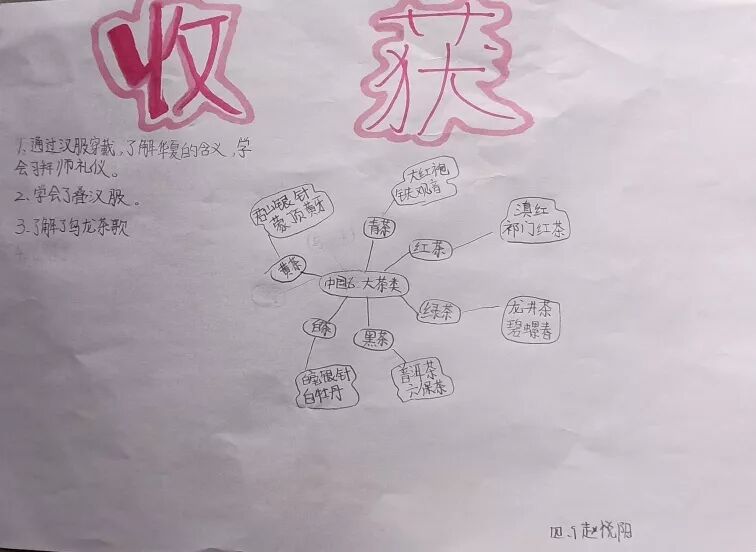 收获
1.通过汉服穿戴,了解华夏的含义,学
会习拜师礼仪。
2.学会了叠汉服。
3.了解了乌龙茶歌
大红袍
铁观音
青茶
君山银针
蒙顶黄牙
黄茶
滇红
祁门红茶
红茶
中国六大茶类
绿茶
龙井茶
碧螺春
白茶
黑茶
白毫银针
白牡丹
普洱茶
六保茶
赵悦阳